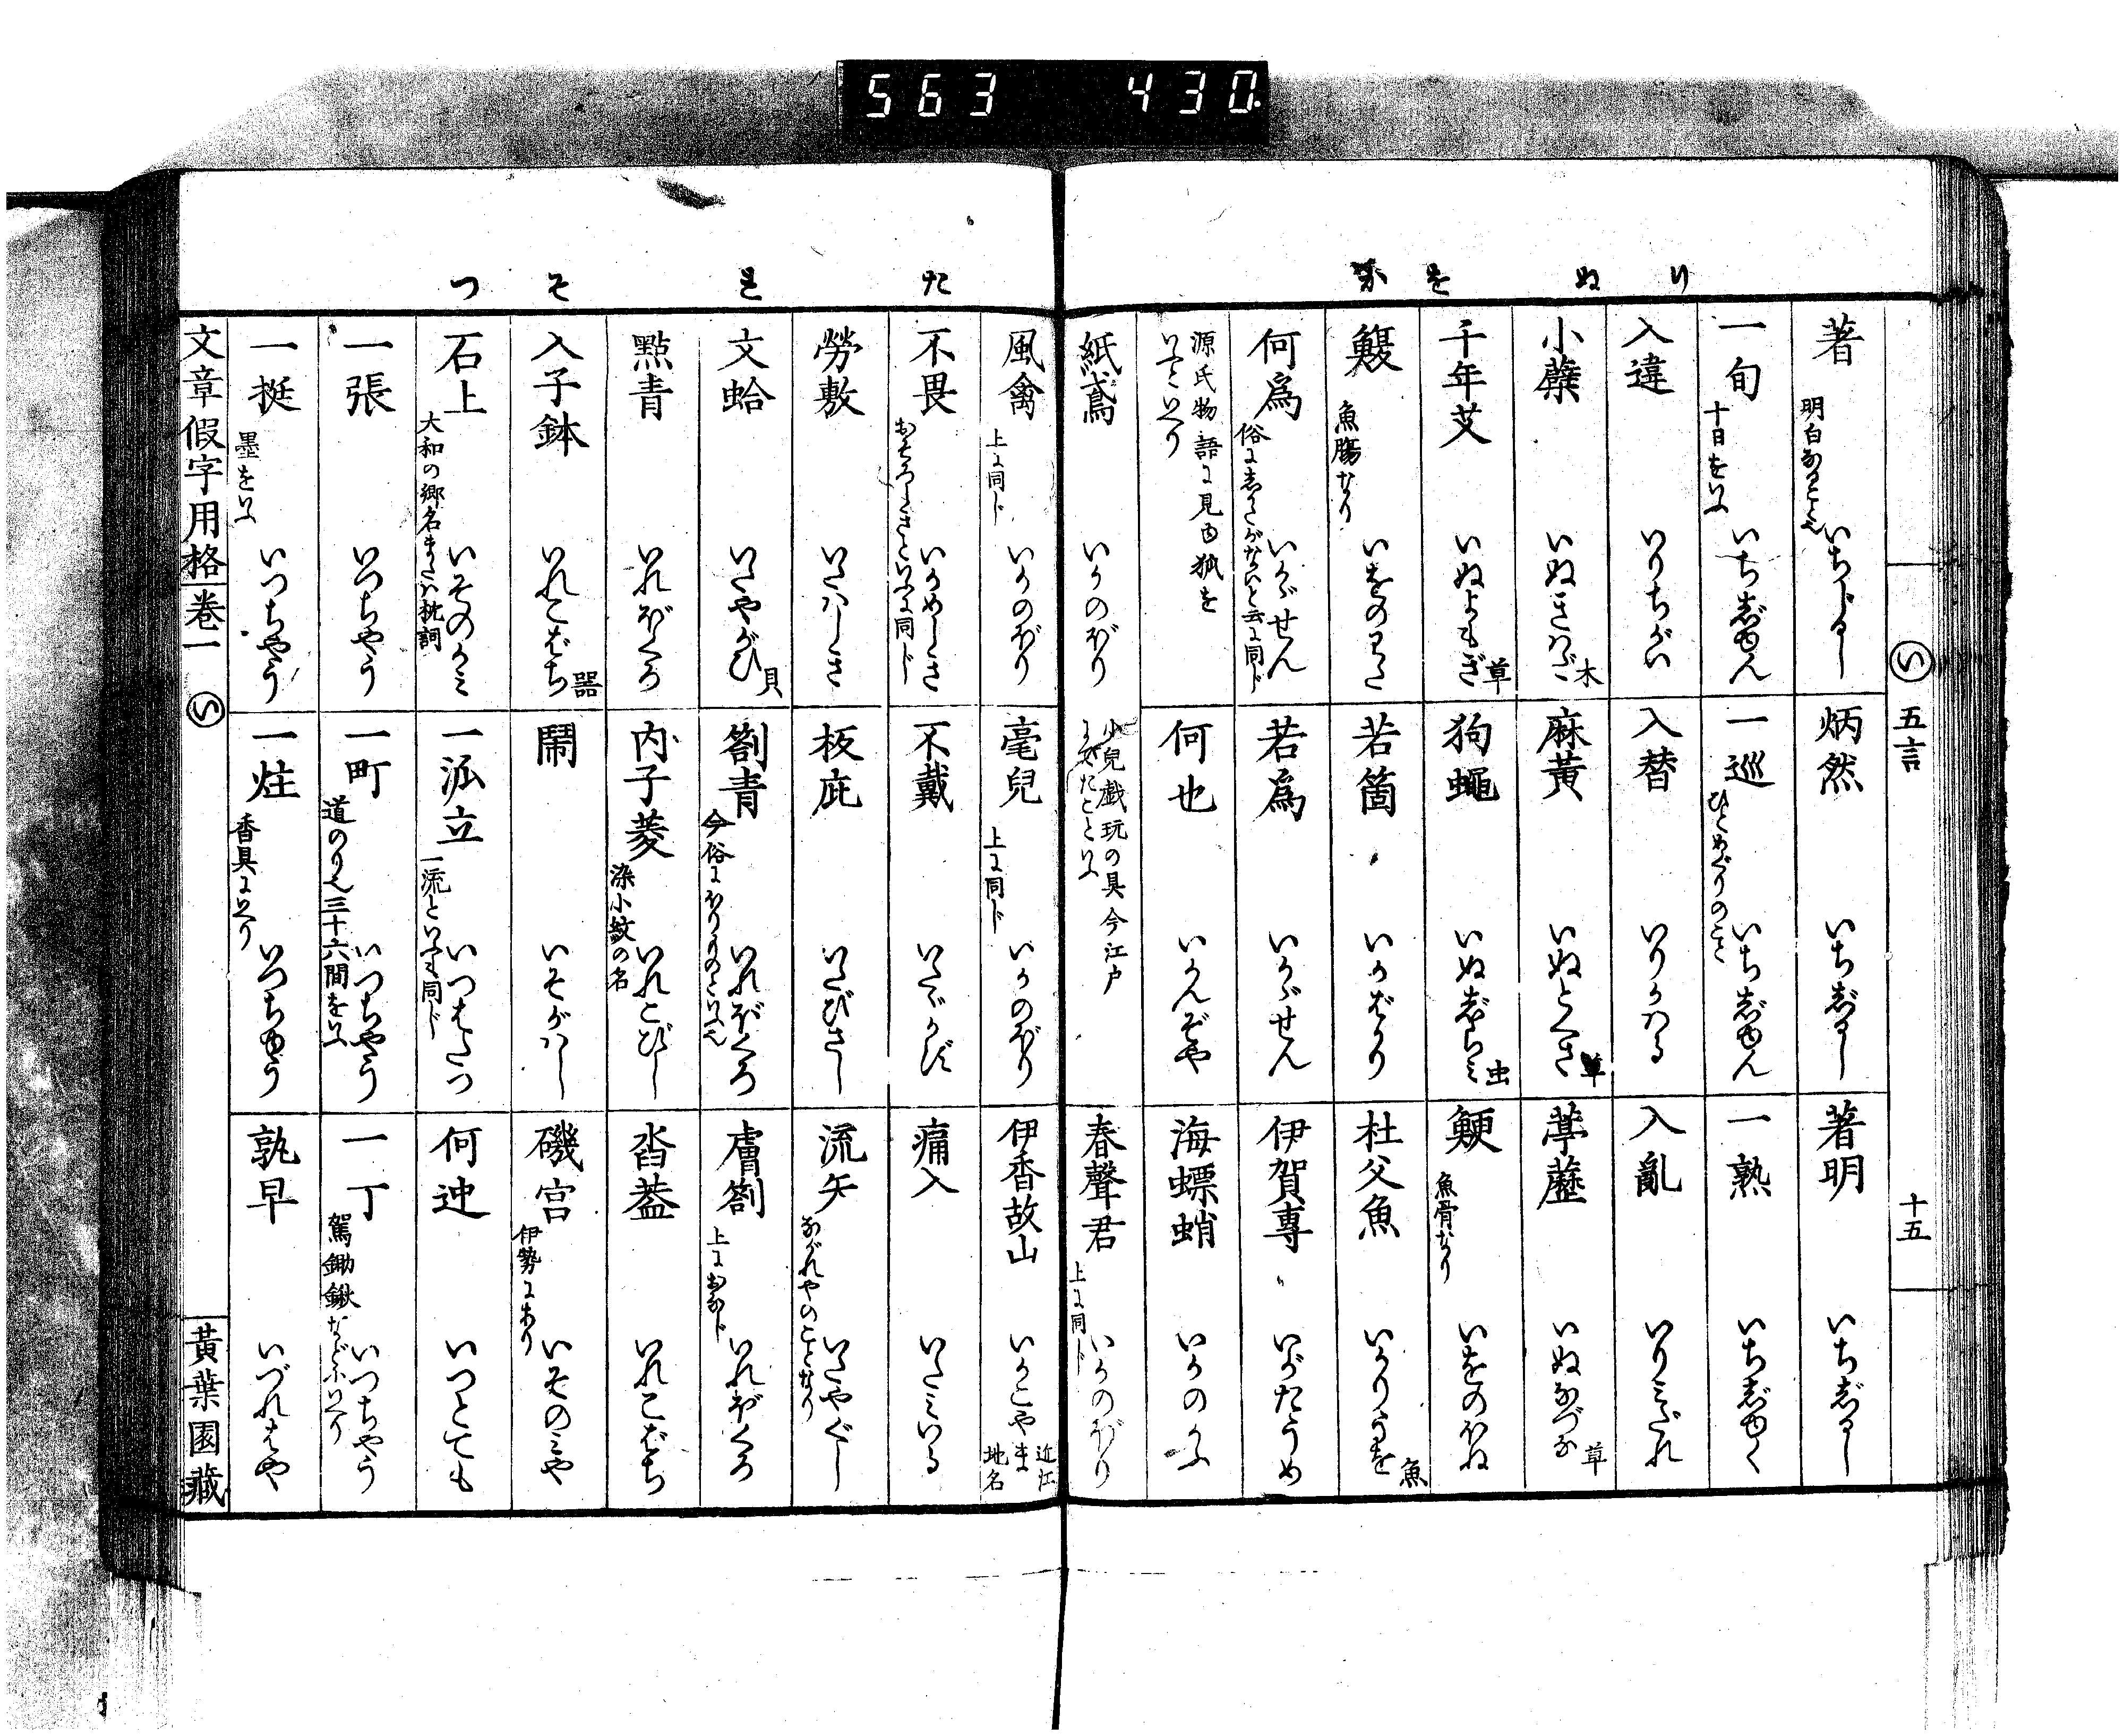 563 430
り ぬ を か
い 五言 十五
著 明白なること也 いちじるし
炳然 いちじるし
著明 いちじるし
一旬 十日をいふ いちじゆん
一巡 ひとめぐりのこと いちじゆん
一熟 いちじゆく
入違 いりちがい
入替 いりかハる
入亂 いりミだれ
小蘗 いぬきハだ 木
麻黃 いぬとくさ 草
葶藶 いぬなづな 草
千年艾 いぬよもぎ 草
狗蠅 いぬじらミ 虫
鯁 魚骨なり いをのほね
魚膓なり いをのわた
若箇 いかばかり
杜父魚 いかりうを 魚
何爲 いかゞせん
若爲 いかゞせん
伊賀專 いがたうめ
源氏物語に見ゆ狐を
いふといへり
何也 いかんぞや
海螵蛸 いかのかふ
紙鳶 いかのぼり
小兒戯玩の具今江戸
にてたことといふ
春聲君 上に同じ いかのぼり
た れ そ つ
風禽 上に同じ いかのぼり
毫兒 上に同じ いかのぼり
伊香故山 いかこやま 近江地名
不畏 おそろしきといふに同じ いかめしき
不戴 いたゞかず
痛入 いたミいる
勞敷 いたハしき
板庇 いたびさし
流矢 ながれやのことなり いたやぐし
文蛤 いたやがひ 貝
劄青 今俗にほりものといふ也 いれぼくろ
膚劄 上におなじ いれぼくろ
點青 いれぼくろ
內子菱 染小紋の名 いれこびし
沓葢 いれこばち
入子鉢 いれこばち 器
鬧 いそがハし
磯宮 伊勢にあり いそのミや
石上 大和の郷名またハ枕詞 いそのかミ
一派立 一流といふに同じ いつはたつ
何迚 いつとても
一張 いつちやう
一町 道のり也三十六間をいふ いつちやう
一丁 駕鋤鍬などにいへり いつちやう
一挺 墨をいふ いつちやう
一炷 香具にいへり いつちゆう
孰早 いづれはや
文章假字用格 卷一 い 黃葉園藏